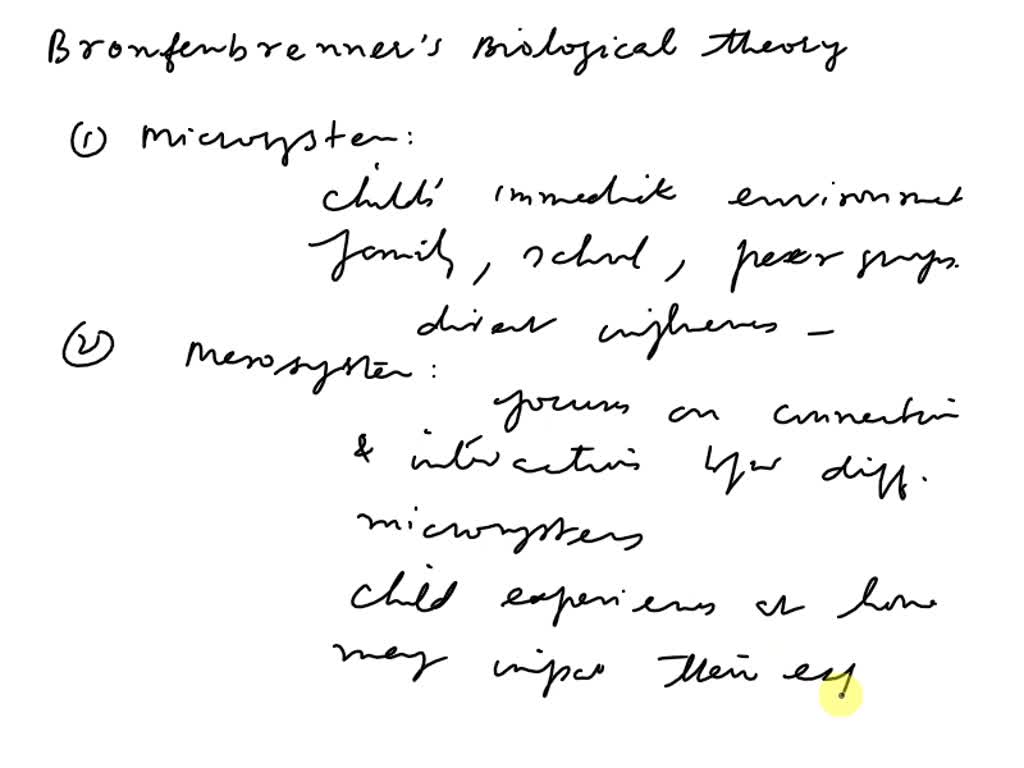 Bronfenbrenner's Biological theory
① Microsystem:
child's immediate environment
family, school, peer groups.
direct influences –
② Mesosystem:
focuses on connection
& interactions btw diff.
microsystems
child experiences at home
may impact their